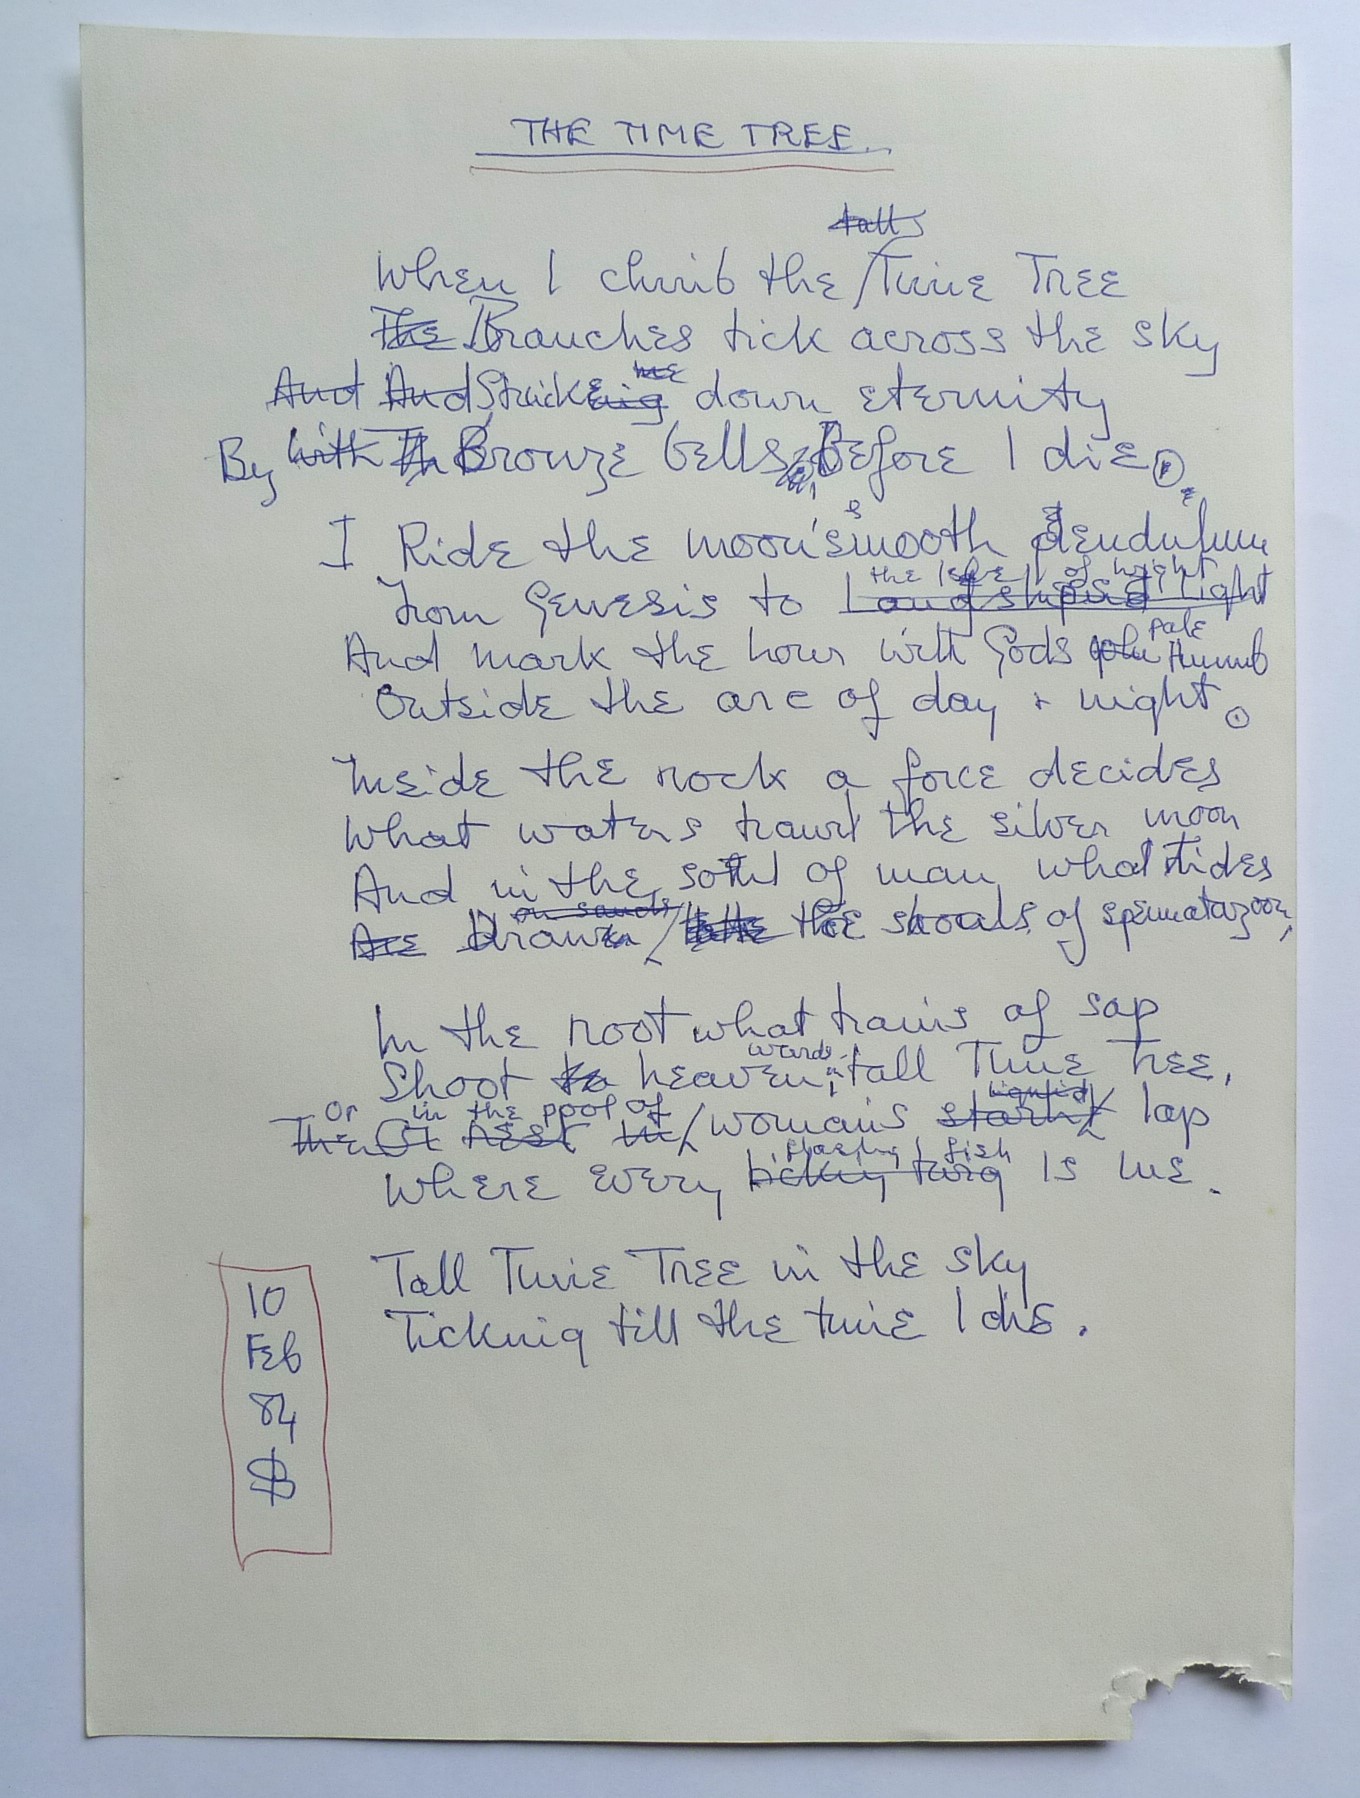 THE TIME TREE.
talls
When I climb the Time Tree
The Branches tick across the sky
And And Strike me down eternity
By with Th Bronze bells, Before I die.
I Ride the moon's smooth pendulum
the Isle of wight
From Genesis to Landshined Light
pale
And mark the hour with Gods thumb
Outside the arc of day + night.
Inside the rock a force decides
What waters haunt the silver moon
And in the soul of man what tides
on sands
Are Drawn the shoals of spermatazoon,
In the root what trains of sap
wards
Shoot to heaven, tall Time Tree,
Or in the pool of liquid
The Or womans lap
flashing fish
Where every ticking is me.
Tall Time Tree in the sky
Ticking till the time I die.
10
Feb
84